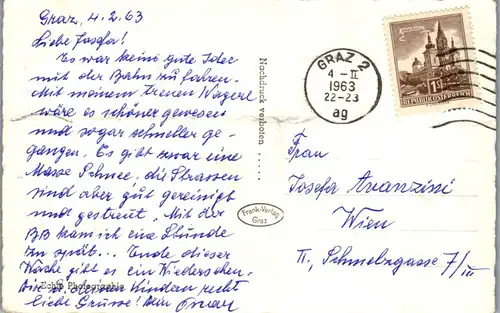 Graz, 4.2.63
Liebe Josefa!
Es war keine gute Idee
mit der Bahn zu fahren.
Mit meinem treuen Wagerl
wäre es schöner gewesen
und sogar schneller ge-
gangen. Es gibt zwar eine
Masse Schnee, die Strassen
sind aber gut gereinigt
und gestreut. Mit der
BB kam ich eine Stunde
zu spät... Ende dieser
Woche gibt es ein Wiedersehen.
Dir u. deinen Kindern recht
liebe Grüsse! Dein
Echte Photographie
Nachdruck verboten
Frank-Verlag
Graz
GRAZ 2
4-II
1963
22-23
ag
1S
REPUBLIK ÖSTERREICH
Frau
Josefa Avanzini
Wien
II., Schmelzgasse 7/III